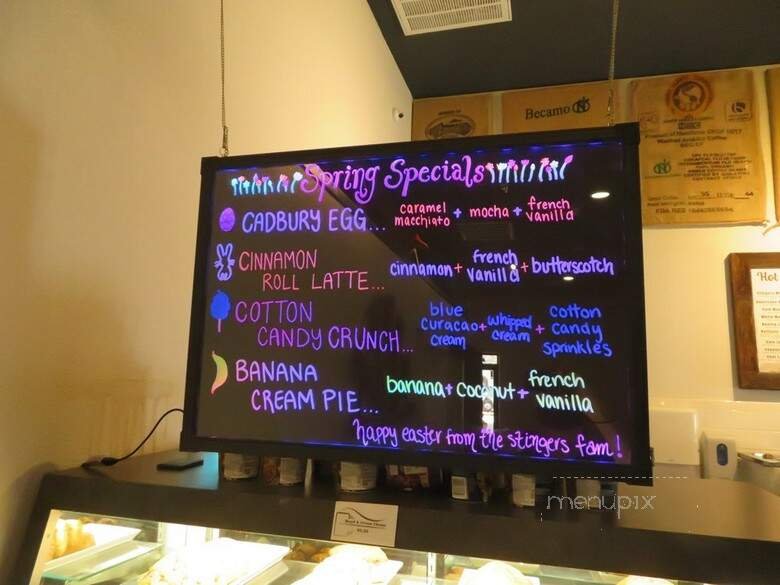 Spring Specials
CADBURY EGG... caramel macchiato + mocha + french vanilla
CINNAMON ROLL LATTE... cinnamon + french vanilla + butterscotch
COTTON CANDY CRUNCH... blue curacao cream + whipped cream + cotton candy sprinkles
BANANA CREAM PIE... banana + coconut + french vanilla
happy easter from the stingers fam!
Becamo
Hot
menupix